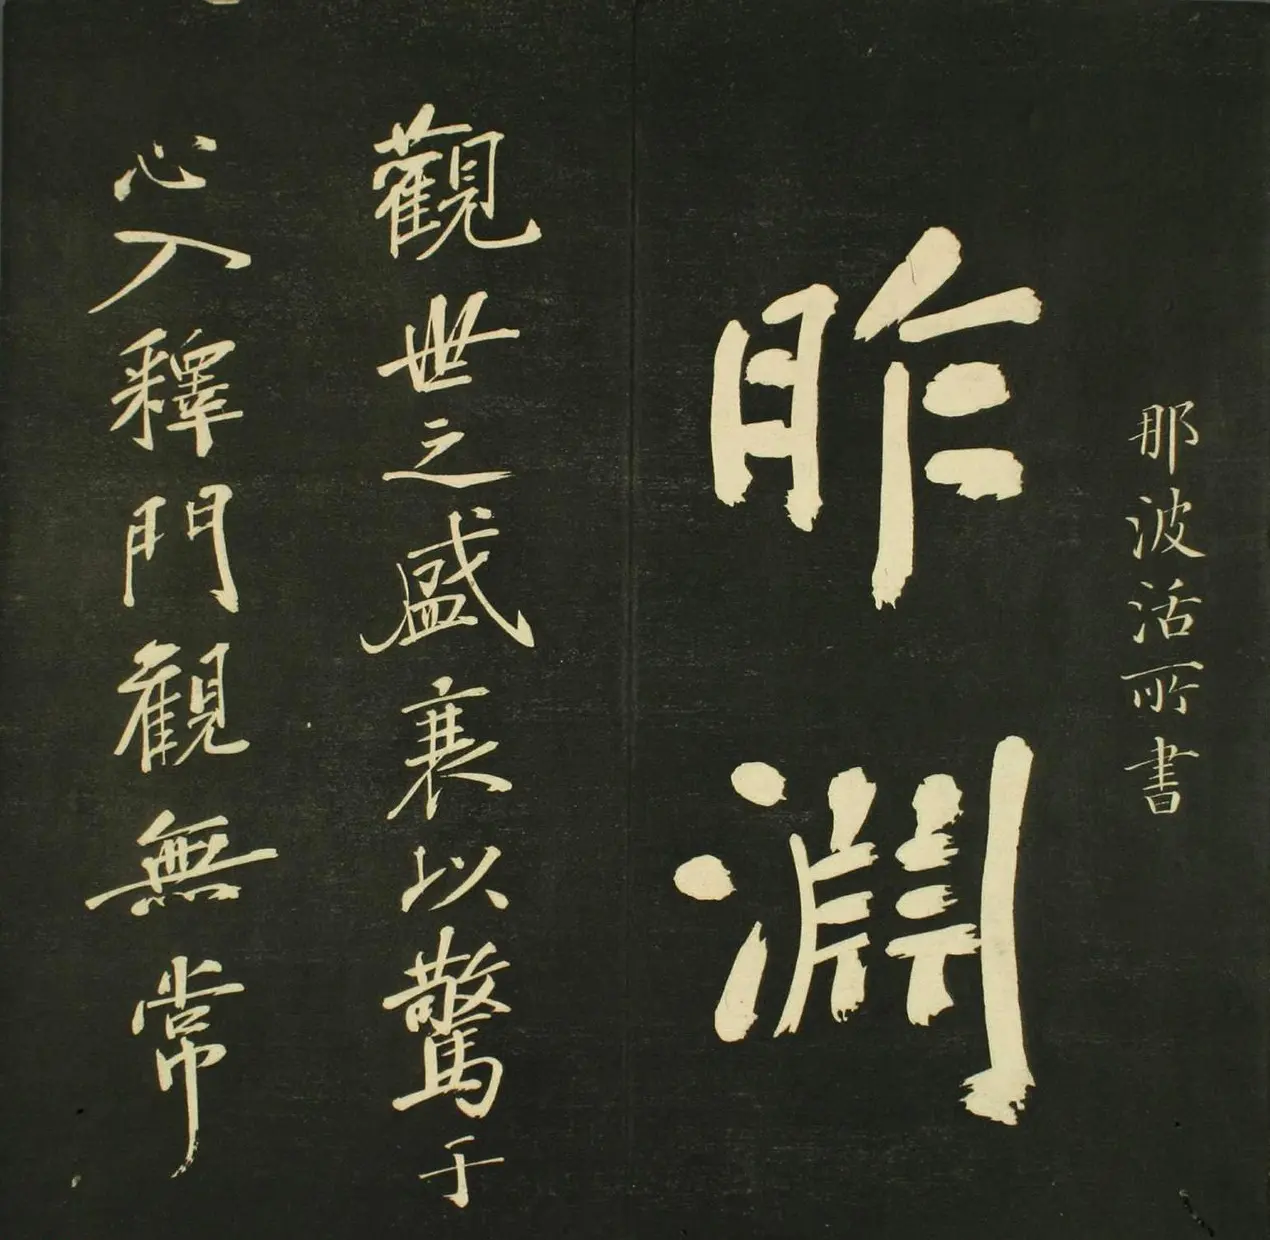 那波活所書
昨淵
觀世之盛衰以驚于
心入釋門觀無常